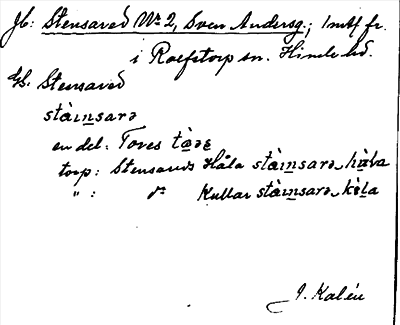 Jb: Stensared No 2, Sven Andersg.; 1 mtl fr.
i Roefstorp sn. Himle hd.
Gs. Stensared
stàinsarə
en del: Tores
torp: Stensareds Håla stàinsarə
" : do Kullar stàinsarə
J. Kalén